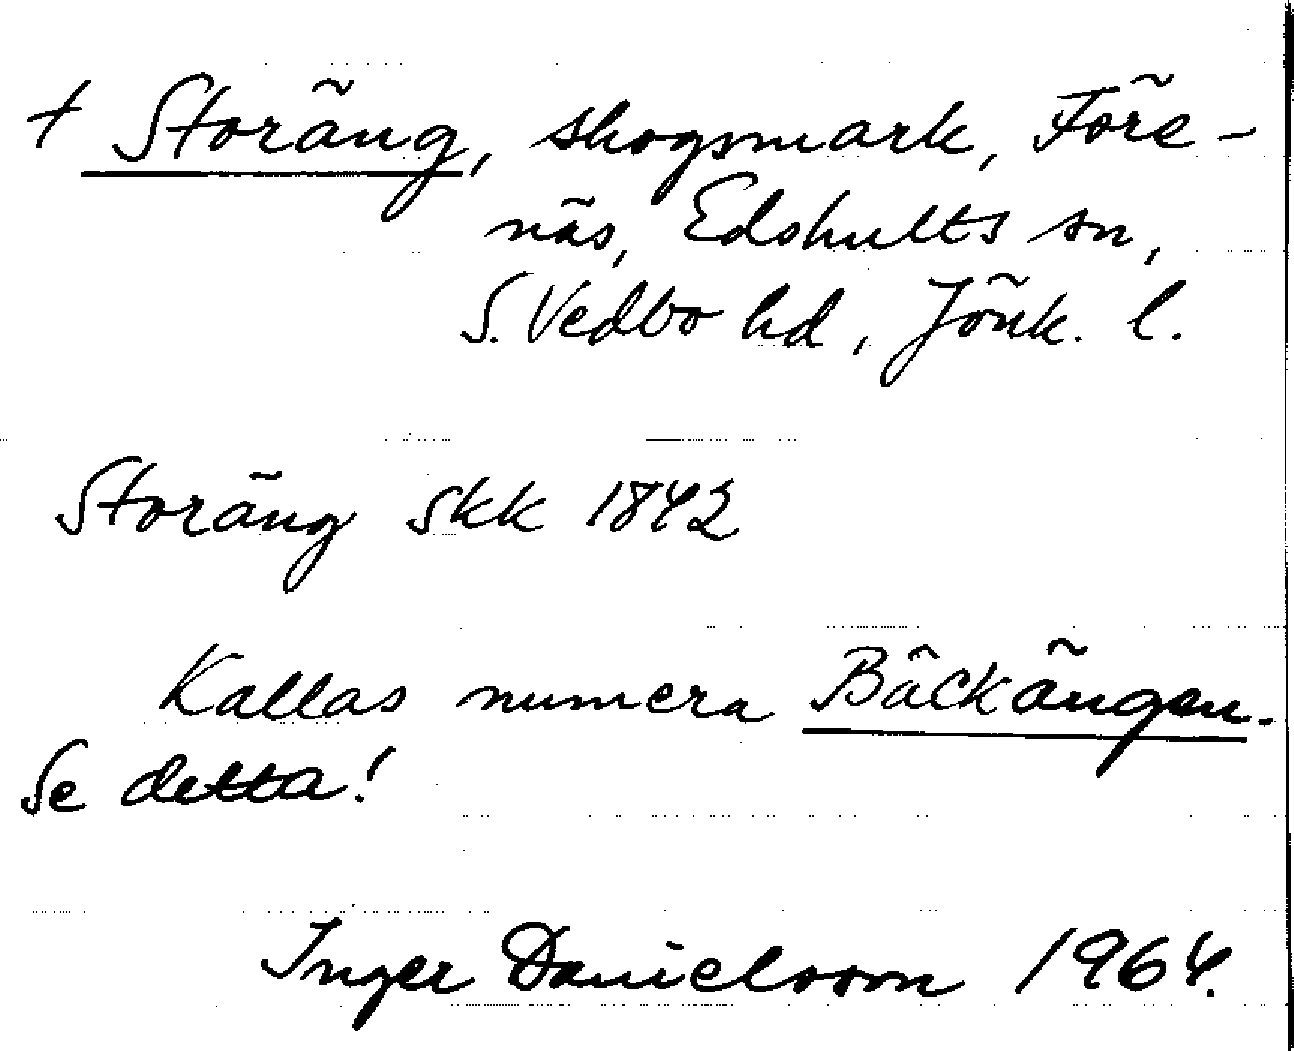 † Storäng, skogsmark, Före-
näs, Edshults sn,
S. Vedbo hd, Jönk. l.
Storäng skk 1842
Kallas numera Bäckängen.
Se detta!
Inger Danielsson 1964.